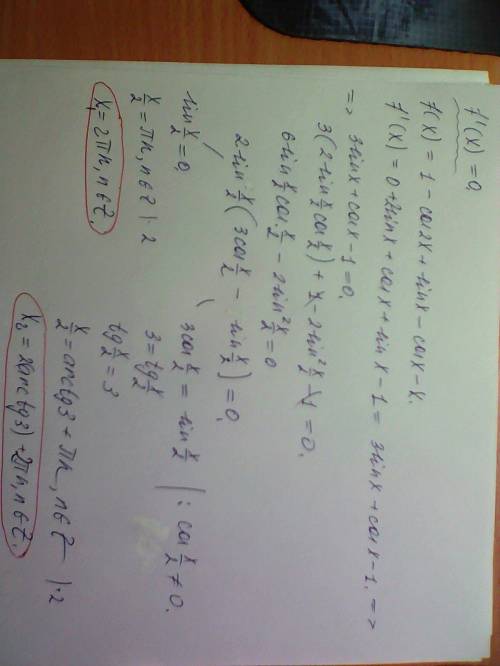 f'(x)=0.
f(x) = 1 - cos2x + sinx - cosx - x.
f'(x) = 0 + 2sinx + cosx + sinx - 1 = 3sinx + cosx - 1. =>
=> 3sinx + cosx - 1 = 0.
3(2sin x/2 cos x/2) + 1 - 2sin² x/2 - 1 = 0.
6sin x/2 cos x/2 - 2sin² x/2 = 0
2sin x/2 (3cos x/2 - sin x/2) = 0.
sin x/2 = 0. 3cos x/2 = sin x/2 | : cos x/2 ≠ 0.
x/2 = πn, n∈Z | · 2 3 = tg x/2
x₁ = 2πn, n∈Z. tg x/2 = 3
x/2 = arctg3 + πn, n∈Z | · 2
x₂ = 2(arctg3) + 2πn, n∈Z.